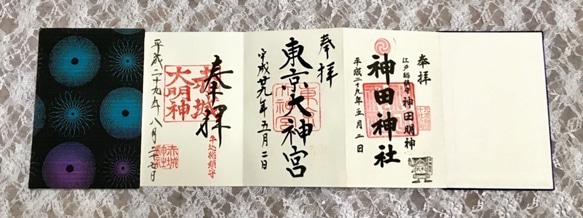 奉拝
江戸総鎮守 神田明神
神田神社
平成二十九年五月二日
奉拝
東京大神宮
平成廿九年五月二日
牛込総鎮守
奉拝
赤城
大明神
平成二十九年八月
赤城
神社